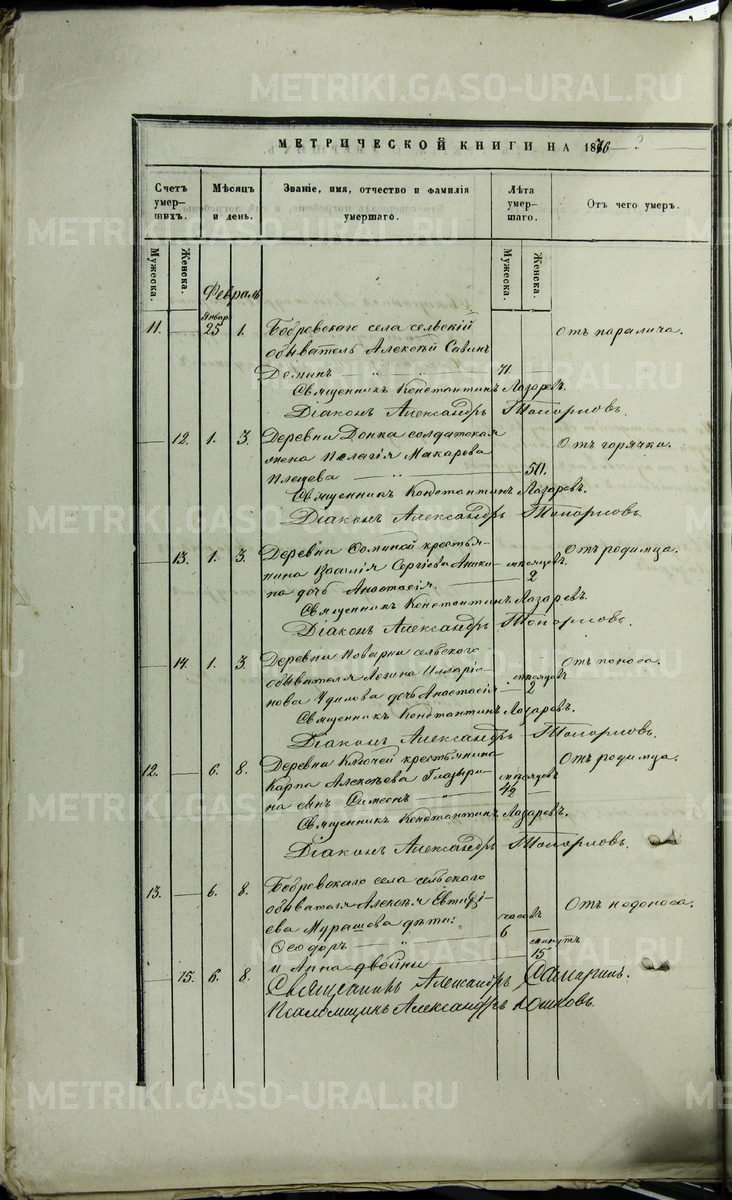 METRIKI.GASO-URAL.RU
МЕТРИЧЕСКОЙ КНИГИ НА 1876
Счетъ умер-тихъ. Мѣсяцъ и день. Званіе, имя, отчество и фамилія умершаго. Лѣта умер-шаго. Отъ чего умеръ.
Мужеска. Женска. Мужеска. Женска.
Февраль
Январ.
11. — 25 1. Бобровскаго села сельскій Отъ паралича.
обыватель Алексѣй Савинъ
Деминъ „ „ 71.
Священникъ Константинъ Лазаревъ.
Діаконъ Александръ Топорковъ.
— 12. 1. 3. Деревни Донка солдатская Отъ горячки.
жена Пелагія Макарова
Плещева — „ — 50.
Священникъ Константинъ Лазаревъ.
Діаконъ Александръ Топорковъ.
— 13. 1. 3. Деревни Фоминой крестья- Отъ родимца.
нина Василія Сергіева Аники- мѣсяцовъ
на дочь Анастасія. 2
Священникъ Константинъ Лазаревъ.
Діаконъ Александръ Топорковъ.
— 14. 1. 3. Деревни Поварни сельскаго Отъ поноса.
обывателя Логина Илларіо- мѣсяцовъ
нова Удилова дочь Анастасія — 2
Священникъ Константинъ Лазаревъ.
Діаконъ Александръ Топорковъ.
12. — 6. 8. Деревни Ключей крестьянина Отъ родимца.
Карпа Алексѣева Глазыри- мѣсяцовъ
на сынъ Симеонъ „
Священникъ Константинъ Лазаревъ.
Діаконъ Александръ Топорковъ.
13. — 6. 8. Бобровскаго села сельскаго Отъ недоноса.
обывателя Алексѣя Евтихі-
ева Мурашова дѣти: часовъ
Ѳеодоръ „ 6 минутъ
и Анна двойни 15
— 15. 6. 8. Священникъ Александръ Самаринъ.
Псаломщикъ Александръ